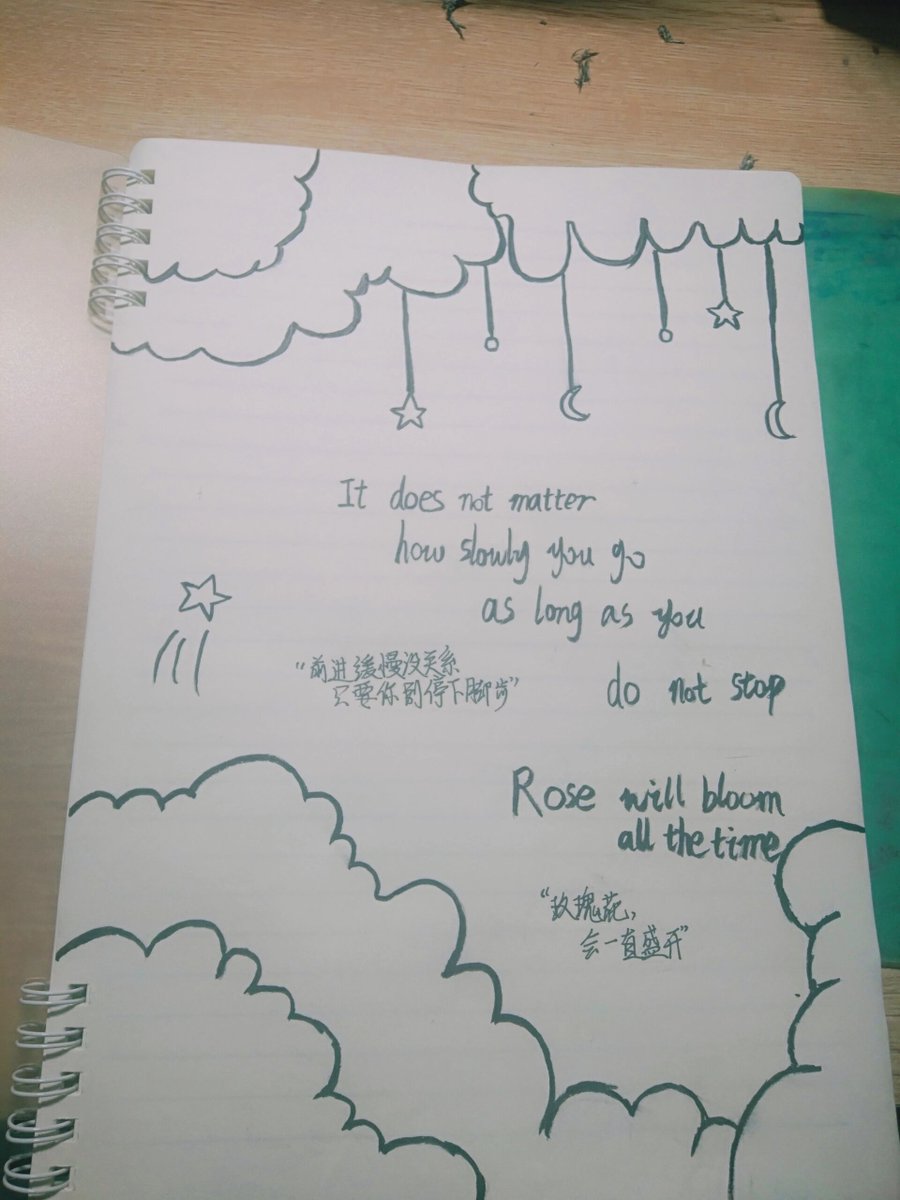 It does not matter
how slowly you go
as long as you
do not stop
“前进缓慢没关系
只要你别停下脚步”
Rose will bloom
all the time
“玫瑰花，
会一直盛开”